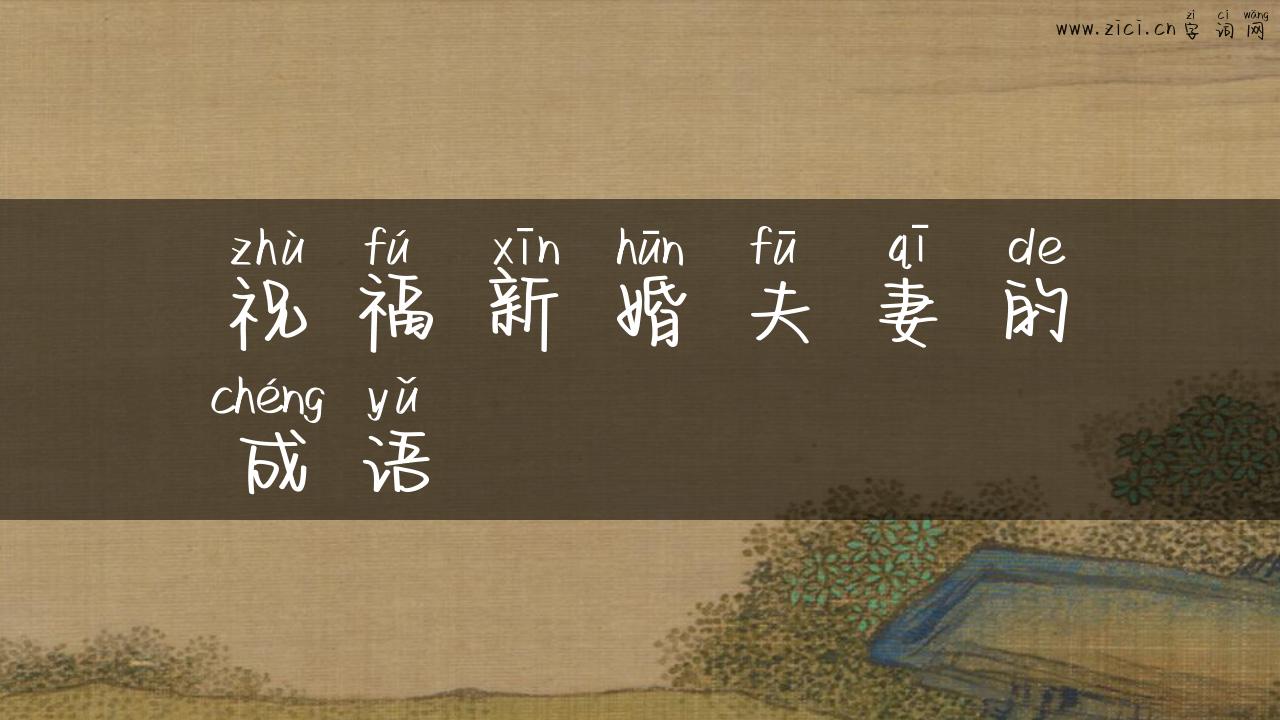 zì cí wǎng
www.zici.cn 字词网
zhù fú xīn hūn fū qī de
祝福新婚夫妻的
chéng yǔ
成语